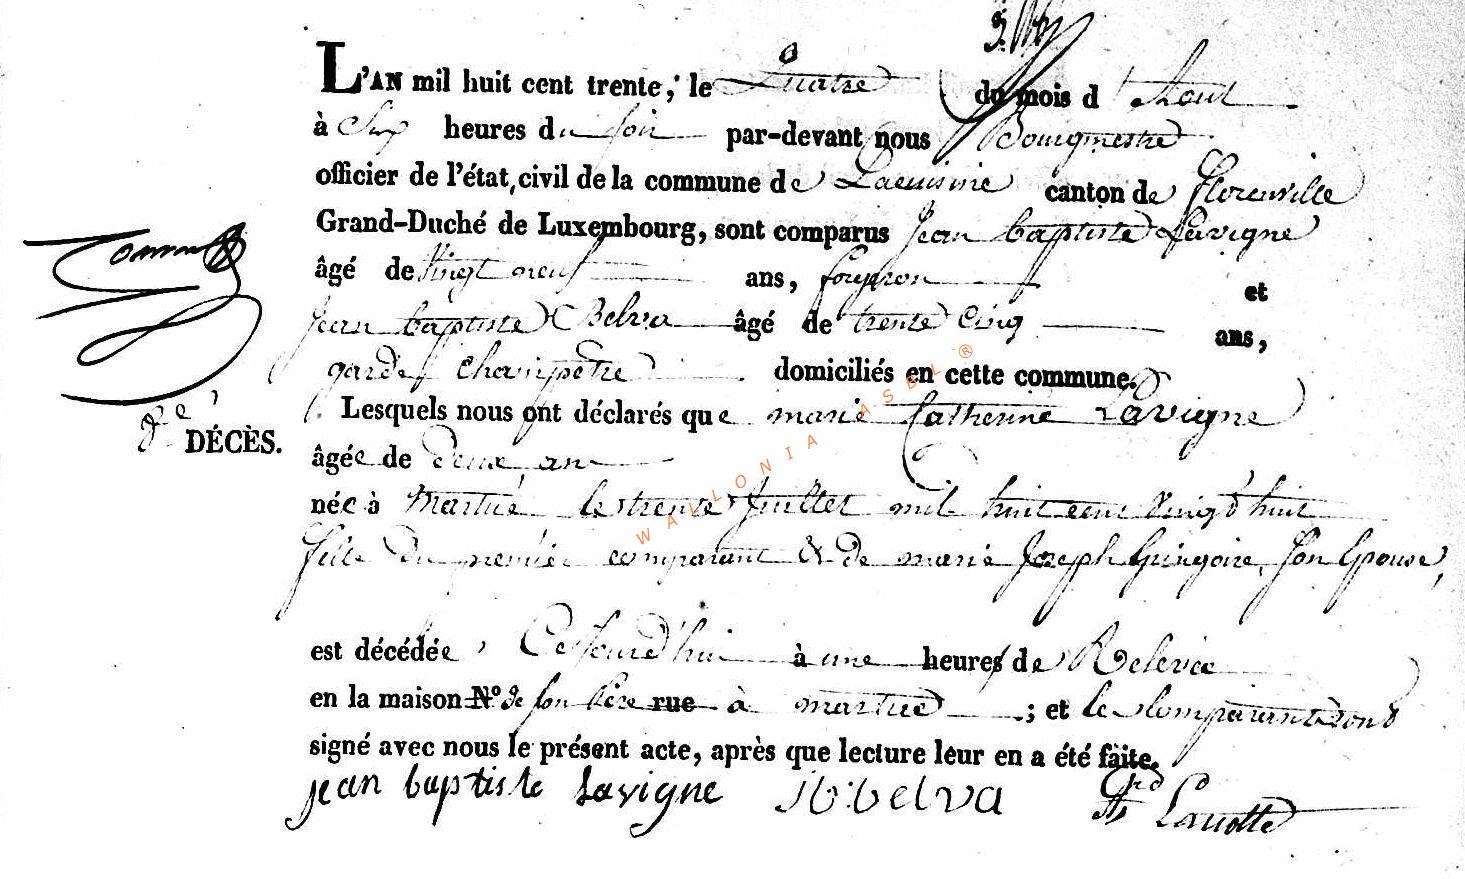 L'AN mil huit cent trente, le Quatre du mois d'Aout
à Six heures du soir par-devant nous Bourgmestre
officier de l'état civil de la commune de Lacuisine canton de Florenville
Grand-Duché de Luxembourg, sont comparus Jean baptiste Lavigne
âgé de Vingt neuf ans, forgeron et
Jean baptiste Belva âgé de trente Cinq ans,
garde Champêtre domiciliés en cette commune.
8e DÉCÈS.
Lesquels nous ont déclarés que marie Catherine Lavigne
âgée de deux an
née à Martué le trente Juillet mil huit cent vingt huit
fille du premier comparant & de marie Joseph Gringoire, son Epouse,
est décédée Cejourd'hui à une heures de Relevée
en la maison N° de son Père rue à martué ; et les Comparants ont
signé avec nous le présent acte, après que lecture leur en a été faite.
jean baptiste Lavigne JB: belva
WALLONIA ASBL ®